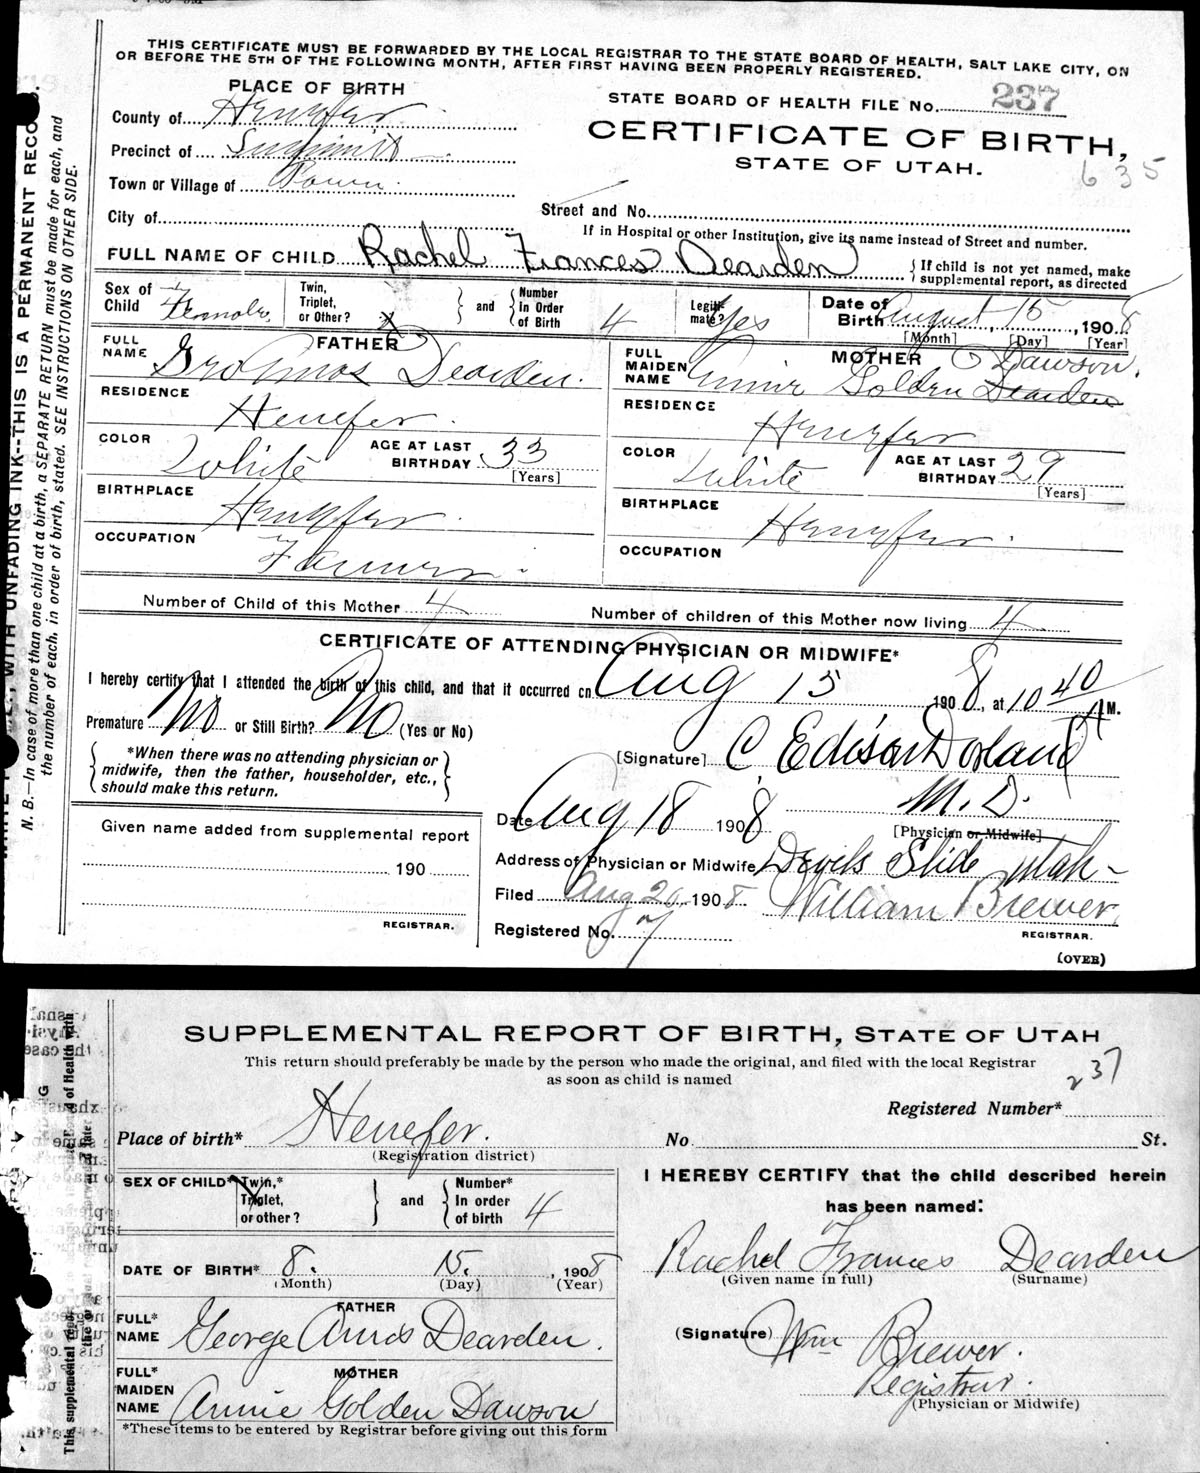 THIS CERTIFICATE MUST BE FORWARDED BY THE LOCAL REGISTRAR TO THE STATE BOARD OF HEALTH, SALT LAKE CITY, ON
OR BEFORE THE 5TH OF THE FOLLOWING MONTH, AFTER FIRST HAVING BEEN PROPERLY REGISTERED.
PLACE OF BIRTH
STATE BOARD OF HEALTH FILE No. 237
County of Henefer
CERTIFICATE OF BIRTH,
Precinct of Summit
STATE OF UTAH.
635
Town or Village of Town
City of
Street and No.
If in Hospital or other Institution, give its name instead of Street and number.
FULL NAME OF CHILD Rachel Frances Dearden { If child is not yet named, make supplemental report, as directed
Sex of Child Female Twin, Triplet, or Other? X and Number In Order of Birth 4 Legitimate? Yes Date of Birth August 15, 1908
[Month] [Day] [Year]
FATHER
MOTHER Dawson.
FULL NAME Geo Amos Dearden.
FULL MAIDEN NAME Annie Golden Dearden
RESIDENCE Henefer
RESIDENCE Henefer
COLOR White AGE AT LAST BIRTHDAY 33 [Years]
COLOR White AGE AT LAST BIRTHDAY 29 [Years]
BIRTHPLACE Henefer.
BIRTHPLACE Henefer.
OCCUPATION Farmer.
OCCUPATION
Number of Child of this Mother 4
Number of children of this Mother now living 4
CERTIFICATE OF ATTENDING PHYSICIAN OR MIDWIFE*
I hereby certify that I attended the birth of this child, and that it occurred on Aug 15 1908, at 10 40 A M.
Premature No or Still Birth? No (Yes or No)
[Signature] C Edison Dorland
*When there was no attending physician or
midwife, then the father, householder, etc.,
should make this return.
M. D.
[Physician or Midwife]
Date Aug 18 1908
Given name added from supplemental report
190
REGISTRAR.
Address of Physician or Midwife Devils Slide Utah-
Filed Aug 20, 1908 William Brewer,
REGISTRAR.
Registered No. 7
(OVER)
N. B.—In case of more than one child at a birth, a SEPARATE RETURN must be made for each, and
the number of each, in order of birth, stated. SEE INSTRUCTIONS ON OTHER SIDE.
WITH UNFADING INK--THIS IS A PERMANENT RECORD.
SUPPLEMENTAL REPORT OF BIRTH, STATE OF UTAH
This return should preferably be made by the person who made the original, and filed with the local Registrar
as soon as child is named
237
Registered Number*
Place of birth* Henefer.
(Registration district)
No. St.
SEX OF CHILD* Twin,* Triplet, or other? and Number* In order of birth 4
I HEREBY CERTIFY that the child described herein
has been named:
DATE OF BIRTH* 8. 15. , 1908
(Month) (Day) (Year)
Rachel Frances Dearden
(Given name in full) (Surname)
FATHER
FULL* NAME George Amos Dearden.
(Signature) Wm Brewer.
Registrar.
(Physician or Midwife)
MOTHER
FULL* MAIDEN NAME Annie Golden Dawson
*These items to be entered by Registrar before giving out this form